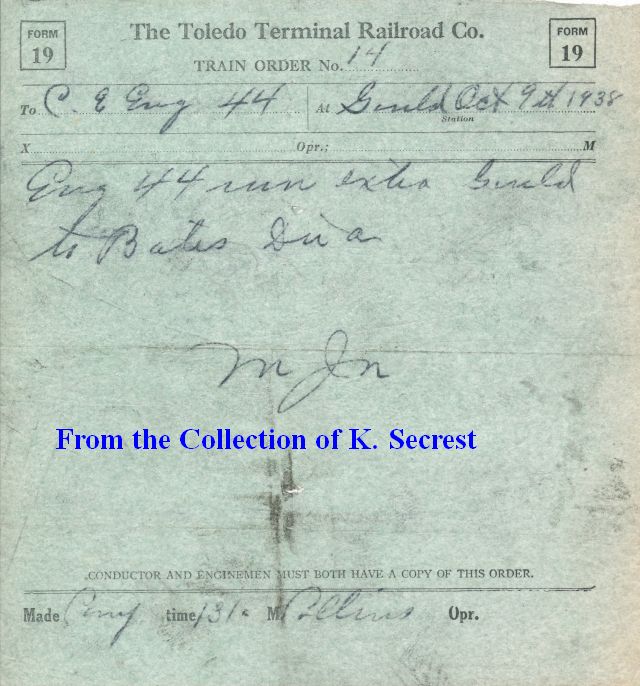 FORM 19
The Toledo Terminal Railroad Co.
FORM 19
TRAIN ORDER No. 14
To C. E Eng 44 At Gould Oct 9th 1938
Station
X Opr.; M
Eng 44 run extra Gould
to Bates
From the Collection of K. Secrest
CONDUCTOR AND ENGINEMEN MUST BOTH HAVE A COPY OF THIS ORDER.
Made time 131a M Opr.